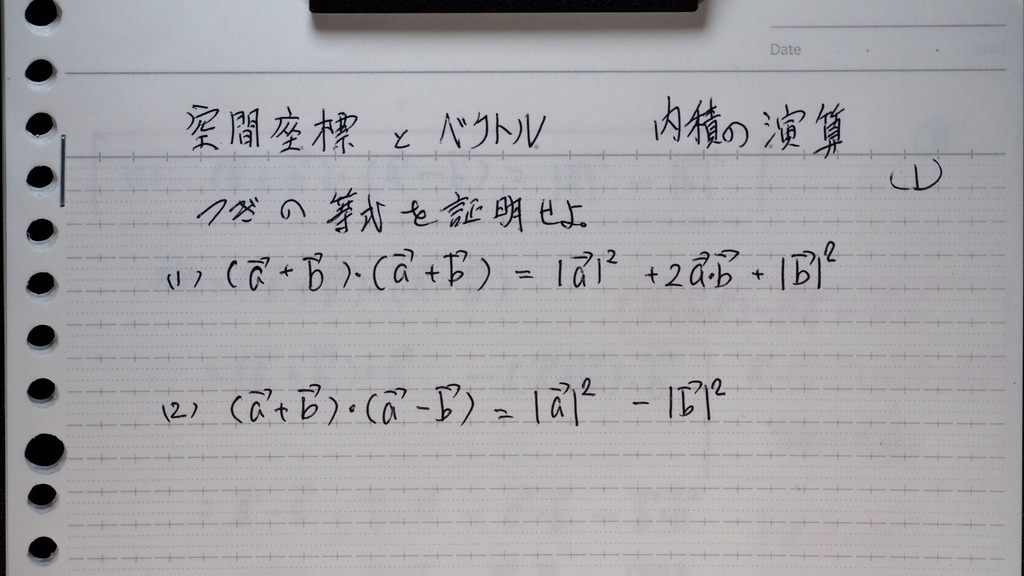 Date
空間座標 と ベクトル 内積の演算
(1)
つぎの 等式を証明せよ。
(1) (a⃗ + b⃗)・(a⃗ + b⃗) = |a⃗|² + 2a⃗・b⃗ + |b⃗|²
(2) (a⃗ + b⃗)・(a⃗ - b⃗) = |a⃗|² - |b⃗|²